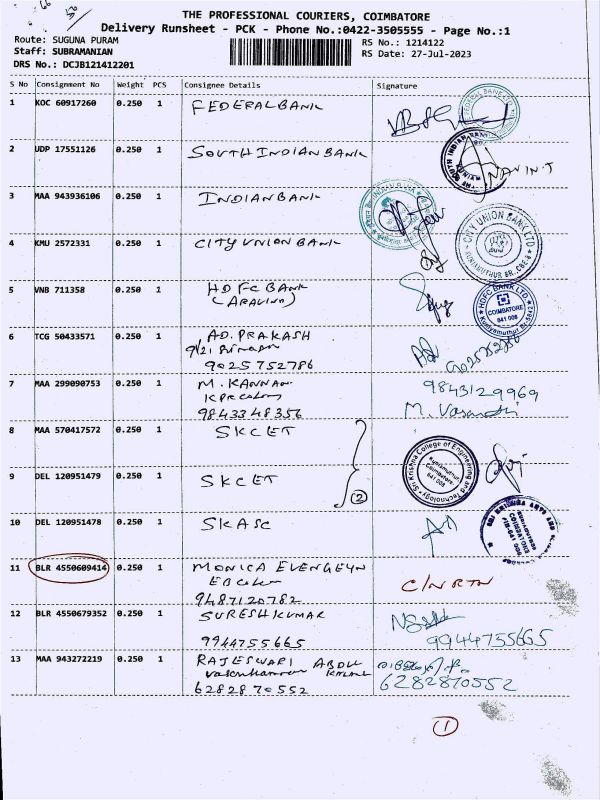 THE PROFESSIONAL COURIERS, COIMBATORE
Delivery Runsheet - PCK - Phone No.:0422-3505555 - Page No.:1
Route: SUGUNA PURAM
Staff: SUBRAMANIAN
RS No.: 1214122
RS Date: 27-Jul-2023
DRS No.: DCJB121412201
S No Consignment No Weight PCS Consignee Details Signature
1 KOC 60917260 0.250 1 FEDERAL BANK
2 UDP 17551126 0.250 1 SOUTH INDIAN BANK
NAVIN.T
3 MAA 943936106 0.250 1 INDIAN BANK
4 KMU 2572331 0.250 1 CITY UNION BANK
CITY UNION BANK LTD
KUNIAMUTHUR BR, CBE-8
5 VNB 711358 0.250 1 HDFC BANK
(ARAVIND)
HDFC BANK LTD.
COIMBATORE
641 008
6 TCG 50433571 0.250 1 AD. PRAKASH
9/21
9025752786
7 MAA 299090753 0.250 1 M. KANNAN
9843348356
9843129969
8 MAA 570417572 0.250 1 SKCET
9 DEL 120951479 0.250 1 SKCET
2
Sri Krishna College of Engineering and Technology
Coimbatore
641 008
10 DEL 120951478 0.250 1 SKASC
SRI KRISHNA ARTS AND
11 BLR 4550609414 0.250 1 MONICA EVENGELYN
9487120782
C/N RTN
12 BLR 4550679352 0.250 1 SURESH KUMAR
9944755665
9944755665
13 MAA 943272219 0.250 1 RAJESWARI ABDUL
6282870552
6282870552
1